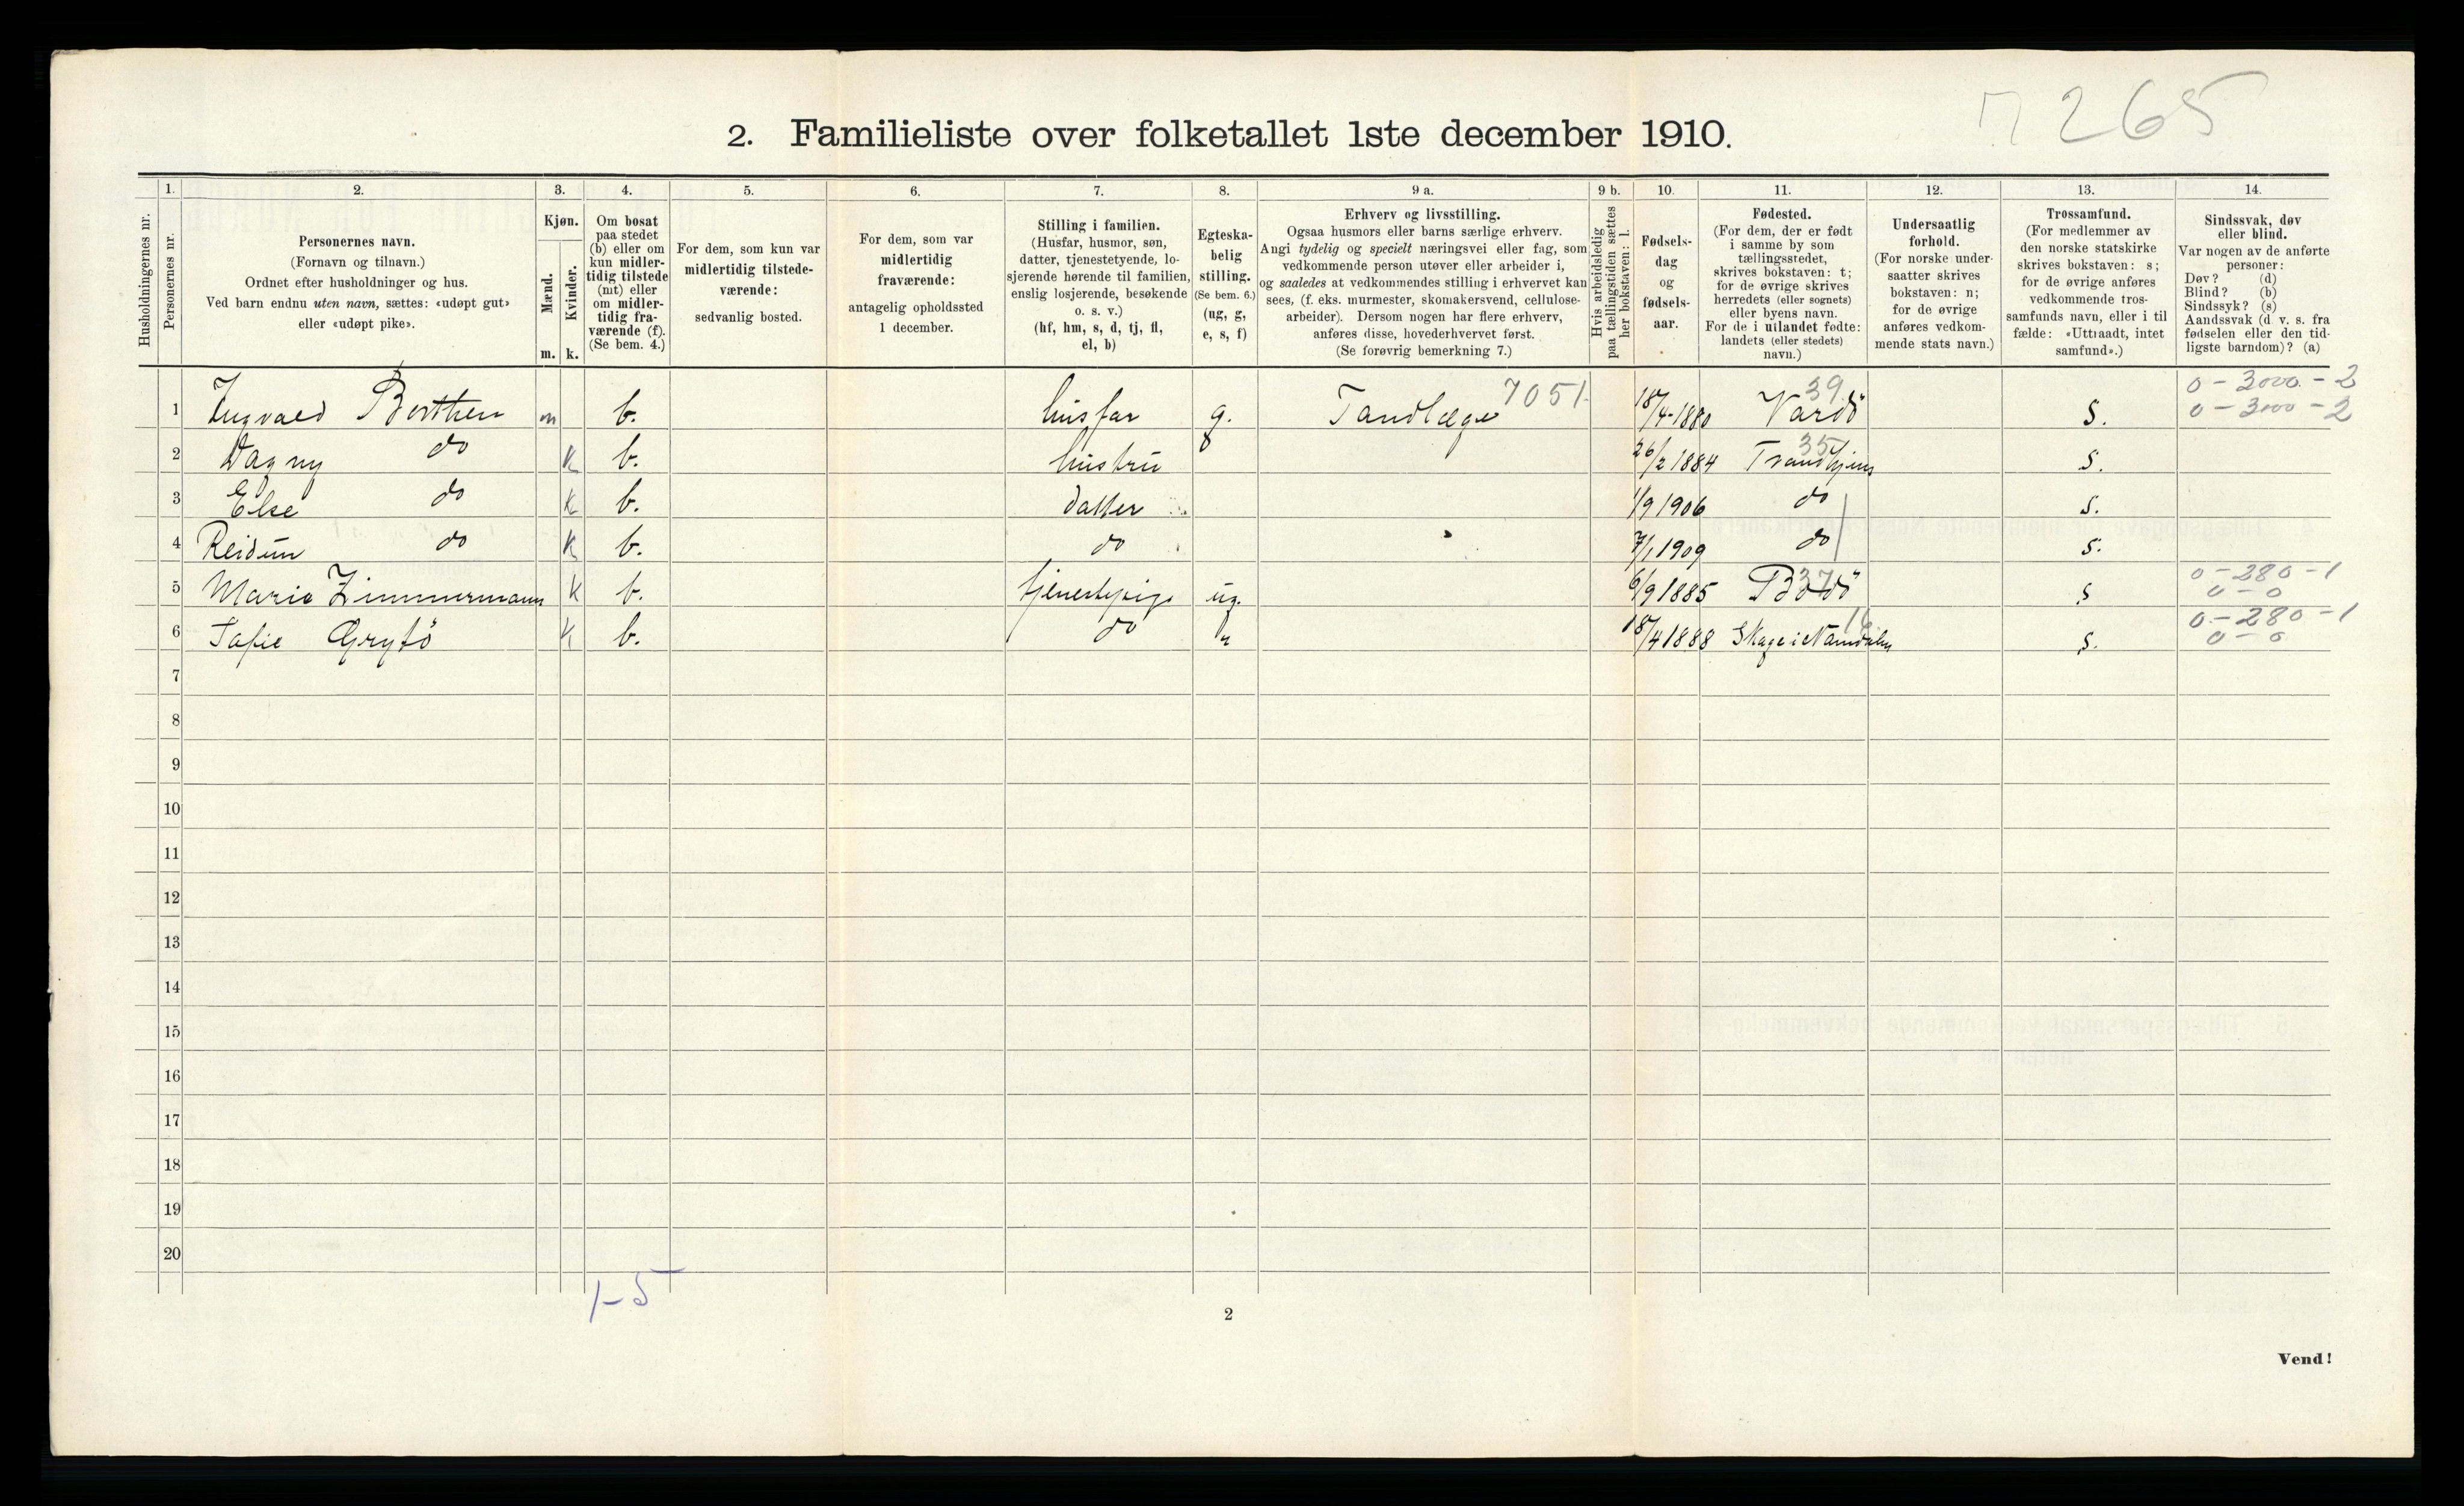 7265
2. Familieliste over folketallet 1ste december 1910.
1. 2. 3. 4. 5. 6. 7. 8. 9 a. 9 b. 10. 11. 12. 13. 14.
Husholdningernes nr.
Personernes nr.
Personernes navn.
(Fornavn og tilnavn.)
Ordnet efter husholdninger og hus.
Ved barn endnu uten navn, sættes: «udøpt gut»
eller «udøpt pike».
Kjøn.
Mænd.
Kvinder.
m. k.
Om bosat
paa stedet
(b) eller om
kun midler-
tidig tilstede
(mt) eller
om midler-
tidig fra-
værende (f).
(Se bem. 4.)
For dem, som kun var
midlertidig tilstede-
værende:
sedvanlig bosted.
For dem, som var
midlertidig
fraværende:
antagelig opholdssted
1 december.
Stilling i familien.
(Husfar, husmor, søn,
datter, tjenestetyende, lo-
sjerende hørende til familien,
enslig losjerende, besøkende
o. s. v.)
(hf, hm, s, d, tj, fl,
el, b)
Egteska-
belig
stilling.
(Se bem. 6.)
(ug, g,
e, s, f)
Erhverv og livsstilling.
Ogsaa husmors eller barns særlige erhverv.
Angi tydelig og specielt næringsvei eller fag, som
vedkommende person utøver eller arbeider i,
og saaledes at vedkommendes stilling i erhvervet kan
sees, (f. eks. murmester, skomakersvend, cellulose-
arbeider). Dersom nogen har flere erhverv,
anføres disse, hovederhvervet først.
(Se forøvrig bemerkning 7.)
Hvis arbeidsledig
paa tællingstiden sættes
her bokstaven: l.
Fødsels-
dag
og
fødsels-
aar.
Fødested.
(For dem, der er født
i samme by som
tællingsstedet,
skrives bokstaven: t;
for de øvrige skrives
herredets (eller sognets)
eller byens navn.
For de i utlandet fødte:
landets (eller stedets)
navn.)
Undersaatlig
forhold.
(For norske under-
saatter skrives
bokstaven: n;
for de øvrige
anføres vedkom-
mende stats navn.)
Trossamfund.
(For medlemmer av
den norske statskirke
skrives bokstaven: s;
for de øvrige anføres
vedkommende tros-
samfunds navn, eller i til
fælde: «Uttraadt, intet
samfund».)
Sindssvak, døv
eller blind.
Var nogen av de anførte
personer:
Døv? (d)
Blind? (b)
Sindssyk? (s)
Aandssvak (d. v. s. fra
fødselen eller den tid-
ligste barndom)? (a)
7051 39 0-3000-2
1 Ingvald Borthen m b. husfar g. Tandlæge 18/4-1880 Vardö S. 0-3000-2
35
2 Dagny do K b. hustru 26/2 1884 Trondhjem S.
3 Else do K b. datter 1/9 1906 do S.
4 Reidun do K b. do 7/1 1909 do S.
37 0-280-1
5 Marie Zimmermann K b. tjenestepige ug. 6/9 1885 Bodö S 0-0
16 0-280-1
6 Grytö K b. do " 18/4 1888 Skage i Namdalen S. 0-0
7
8
9
10
11
12
13
14
15
16
17
18
19
20
1-5
2
Vend!